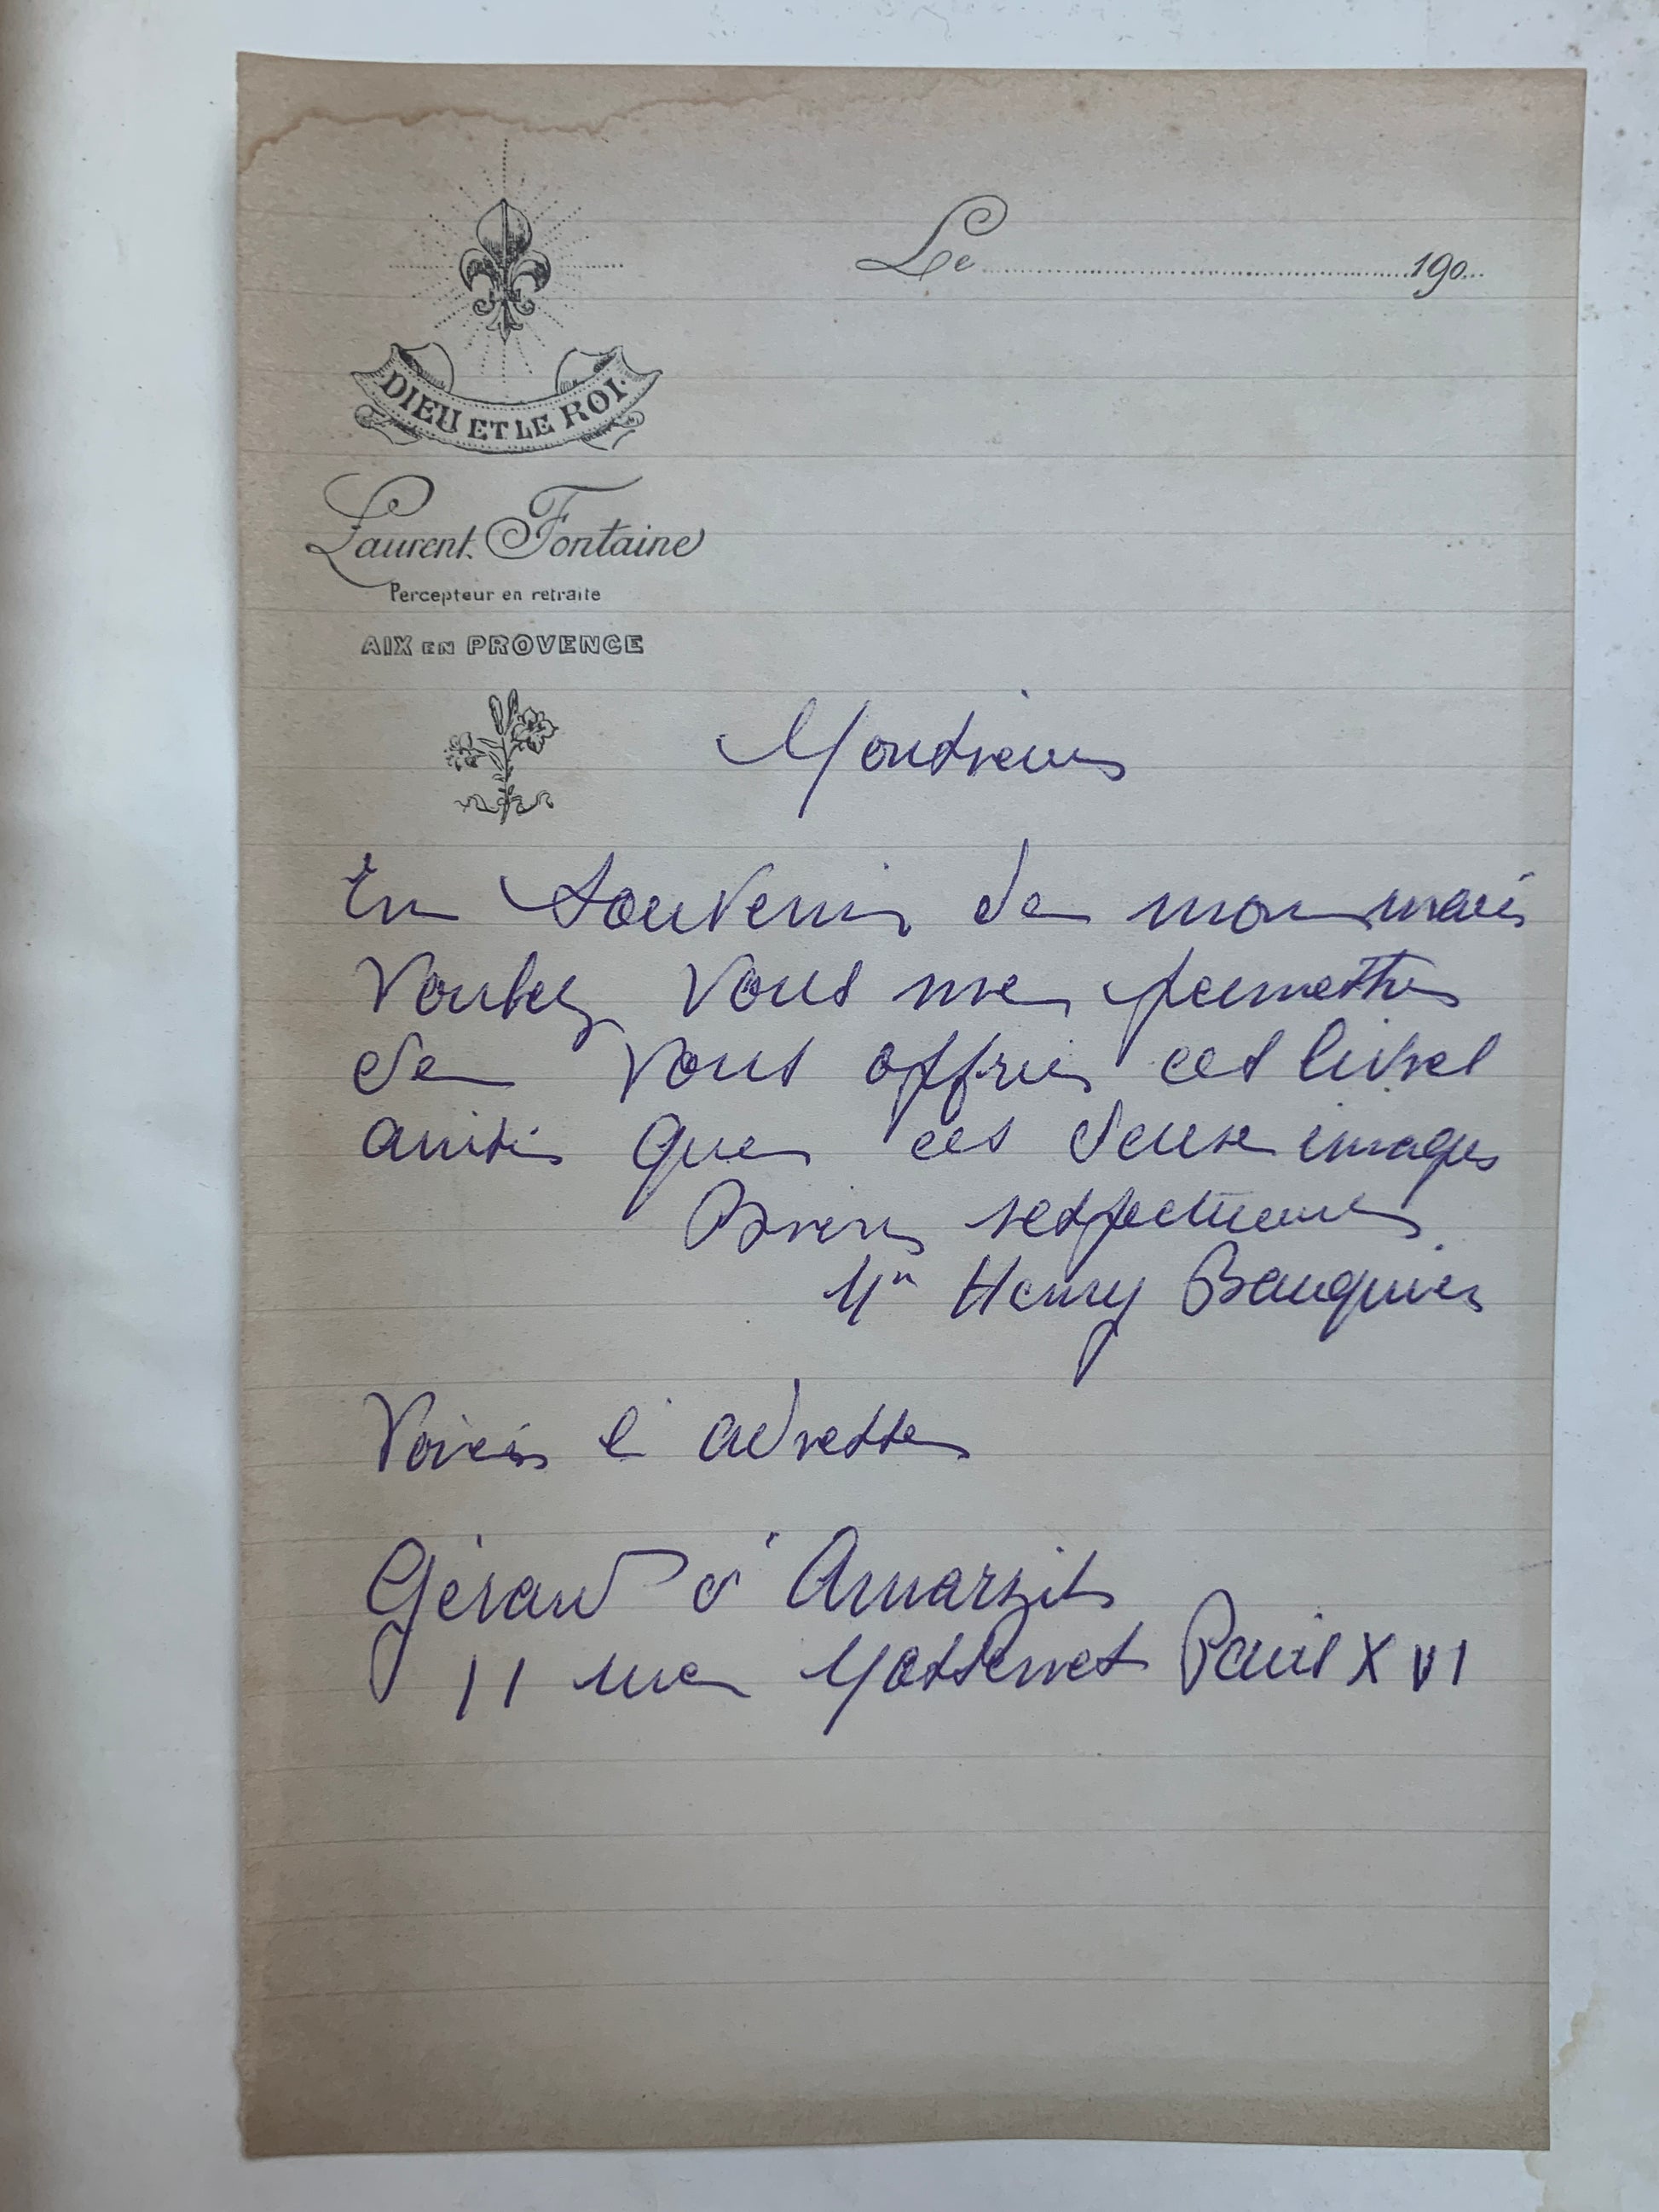 Le 190
DIEU ET LE ROI.
Laurent. Fontaine
Percepteur en retraite
AIX EN PROVENCE
Monsieur
En souvenir de mon mari
Voulez vous me permettre
de vous offrir ces livres
ainsi que ces deux images
Bien respectueuse
Mme Henry Bauquier
Voici l'adresse
Géraud d'Amarzit
11 rue Massenet Paris XVI